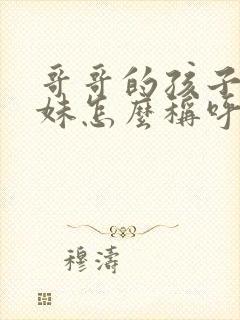 哥哥的孩子
妹怎麼稱呼
穆濤